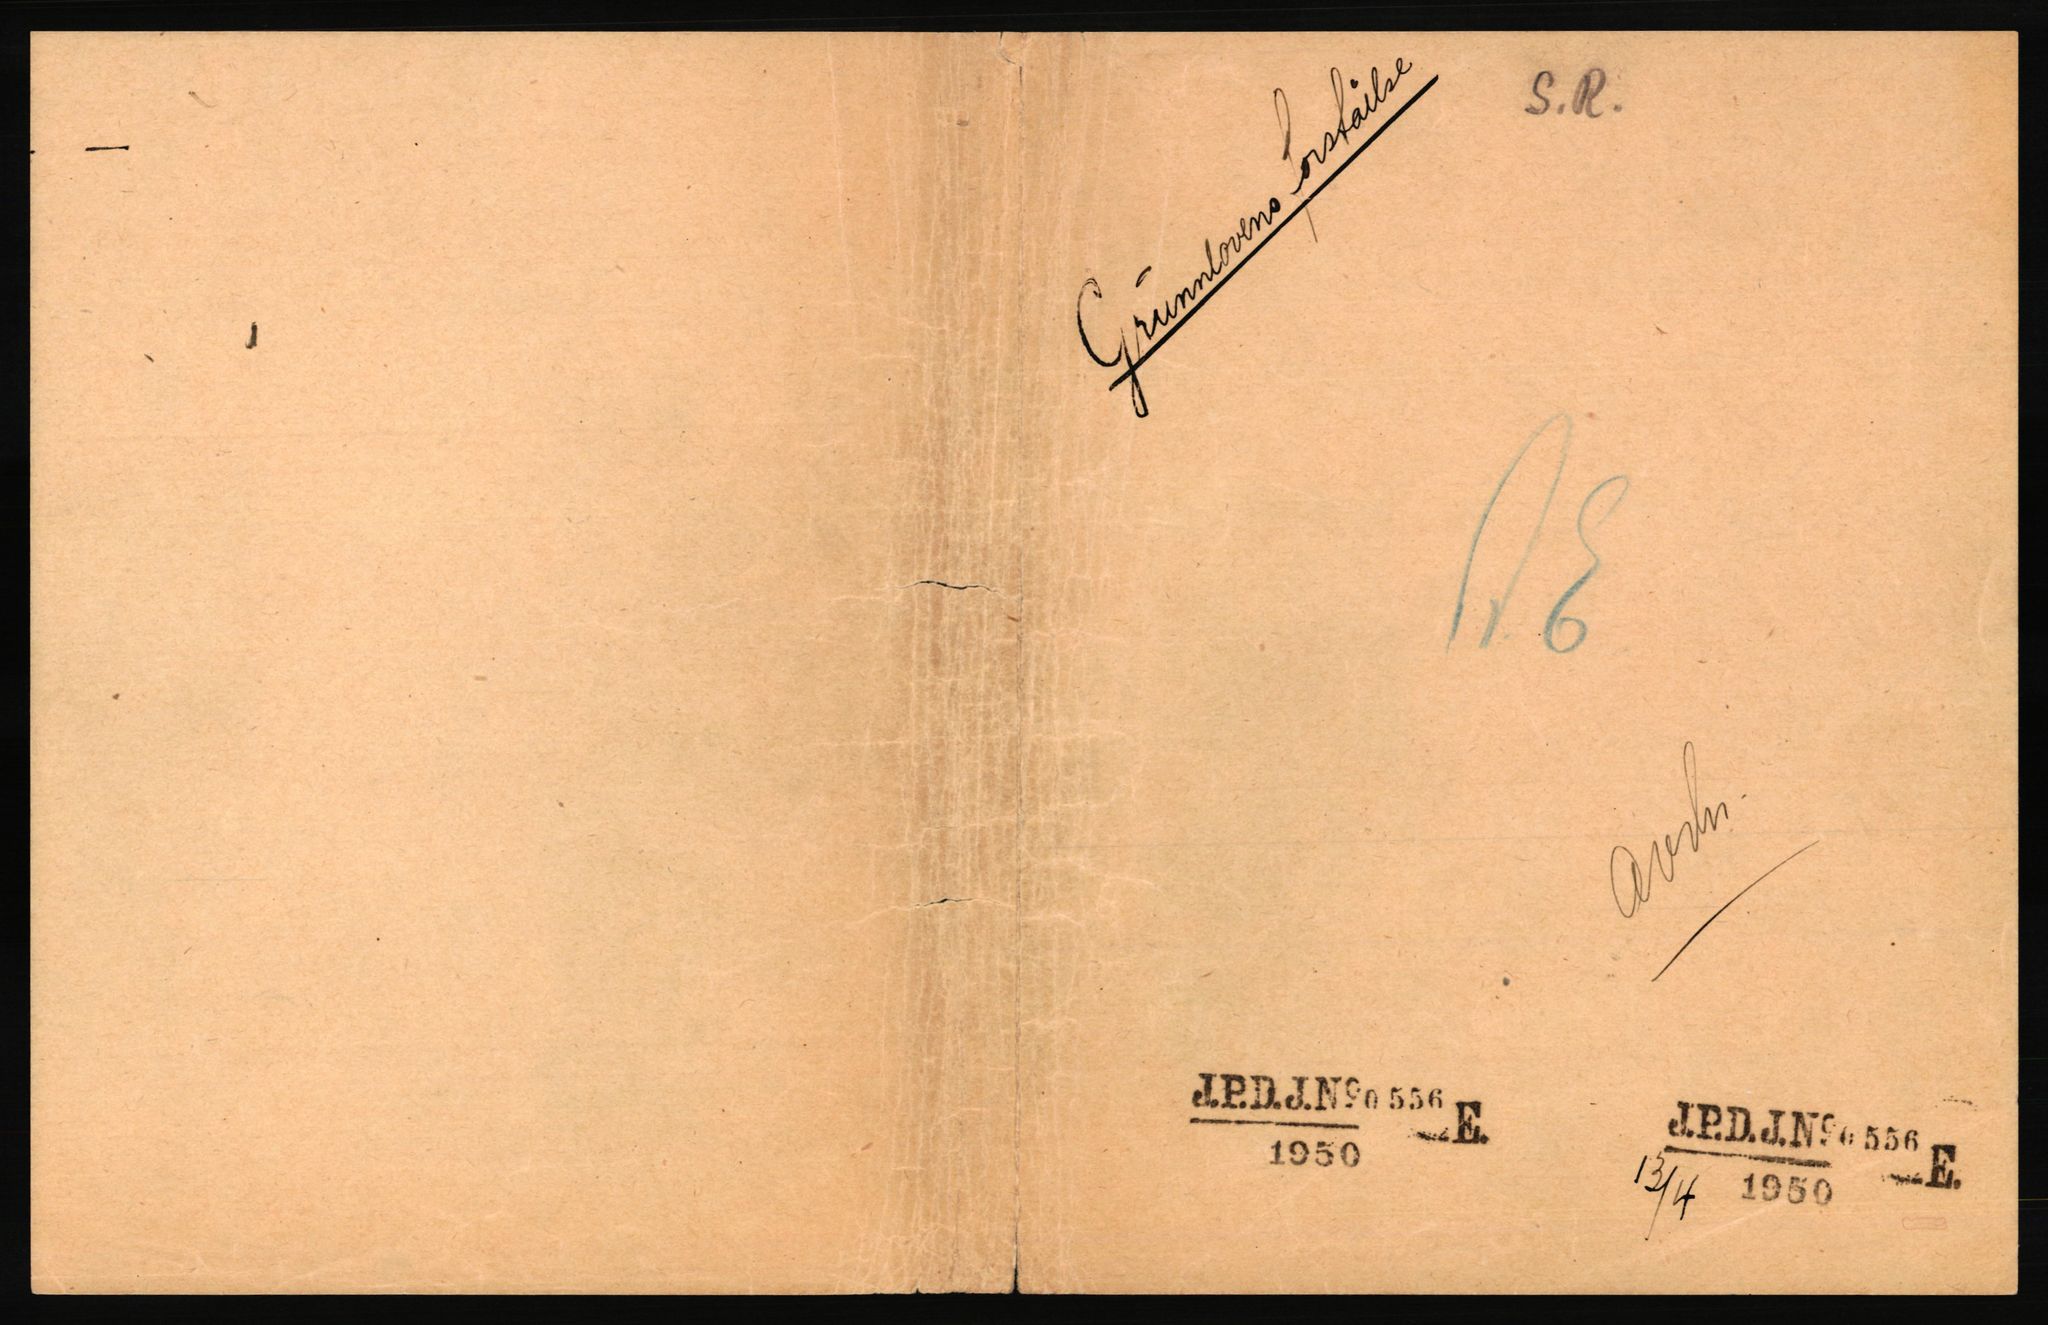 S.R.
Grunnlovens forståelse
J.P.D.J.Nº 0 556 E.
1950
J.P.D.J.Nº 0 556 E.
13/4 1950